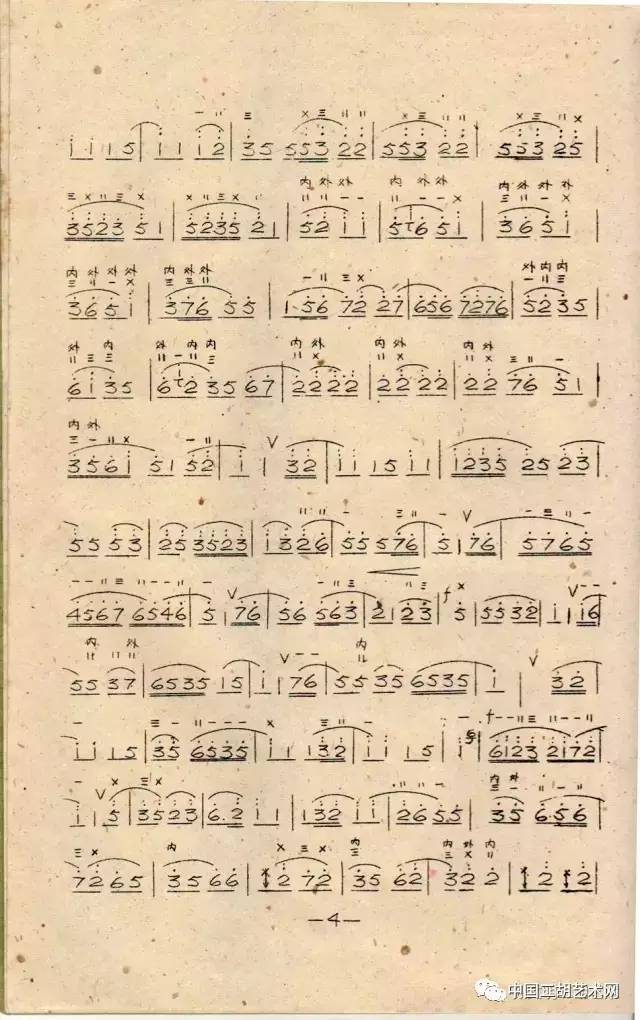 一 〢 三 × 三 〢 〢 × 三 〢 〢 × 三 〢 ×
i i i 5 | i i i 2 | 3 5 5 5 3 2 2 | 5 5 3 2 2 | 5 5 3 2 5 |
内 外外 内 外外 内外外外
三 × 〢 三 × × 三 × 三 〢 〢 〢 一 一 〢 〢 一 × 三 〢 一 ×
3 5 2 3 5 1 | 5 2 3 5 2 1 | 5 2 i i | 5 6 5 i | 3 6 5 i |
内外外外 内外外 外内内
三 〢 一 × 三 〢 〢 一 〢 三 ×
3 6 5 i | 3 7 6 5 5 | 1 5 6 7 2 2 7 | 6 5 6 7 2 7 6 | 5 2 3 5
外 内 外 内内 内外 内外 内外
〢 三 三 〢 一 〢 三 〢 × 〢 × 〢 × 三 〢 一
6 i 3 5 | 6 2 3 5 6 7 | 2 2 2 2 | 2 2 2 2 | 2 2 7 6 5 1 |
内外
三 一 〢 × 一 〢 V
3 5 6 i 5 1 5 2 | i | 3 2 | i i i 5 i i | i 2 3 5 2 5 2 3
〢 〢 一 一 三 〢 一 V 一 三 〢 一
5 5 5 3 | 2 5 3 5 2 3 | i 3 2 6 | 5 5 5 7 6 | 5 | 7 6 | 5 7 6 5
一 一 〢 三 〢 一 一 〢 V 一 〢 三 〢 三 f × V 一 一
4 5 6 7 6 5 4 6 | 5 | 7 6 | 5 6 5 6 3 | 2 1 2 3 | 5 | 5 5 3 2 | i | i 6
内 外 V 一 一 内 V
5 5 3 7 | 6 5 3 5 1 5 | i | 7 6 | 5 5 3 5 6 5 3 5 | i | 3 2 |
一 三 一 〢 一 一 一 × 三 〢 一 一 f 一 一 〢 三 〢 一 一 〢
i i i 5 | 3 5 6 5 3 5 | i i i 3 2 | i i i 5 | i | 6 1 2 3 2 1 7 2
一 V × 三 × 内外
i | 5 | 3 5 2 3 | 6. 2 i i | i 3 2 i i | 2 6 5 5 | 3 5 6. 5 6
三 × 内 × 三 × 内 内外内
7 2 6 5 | 3 5 6 6 | 2 7 2 | 3 5 6 2 | 3 2 2 | 2 2 |
—4—
中国二胡艺术网